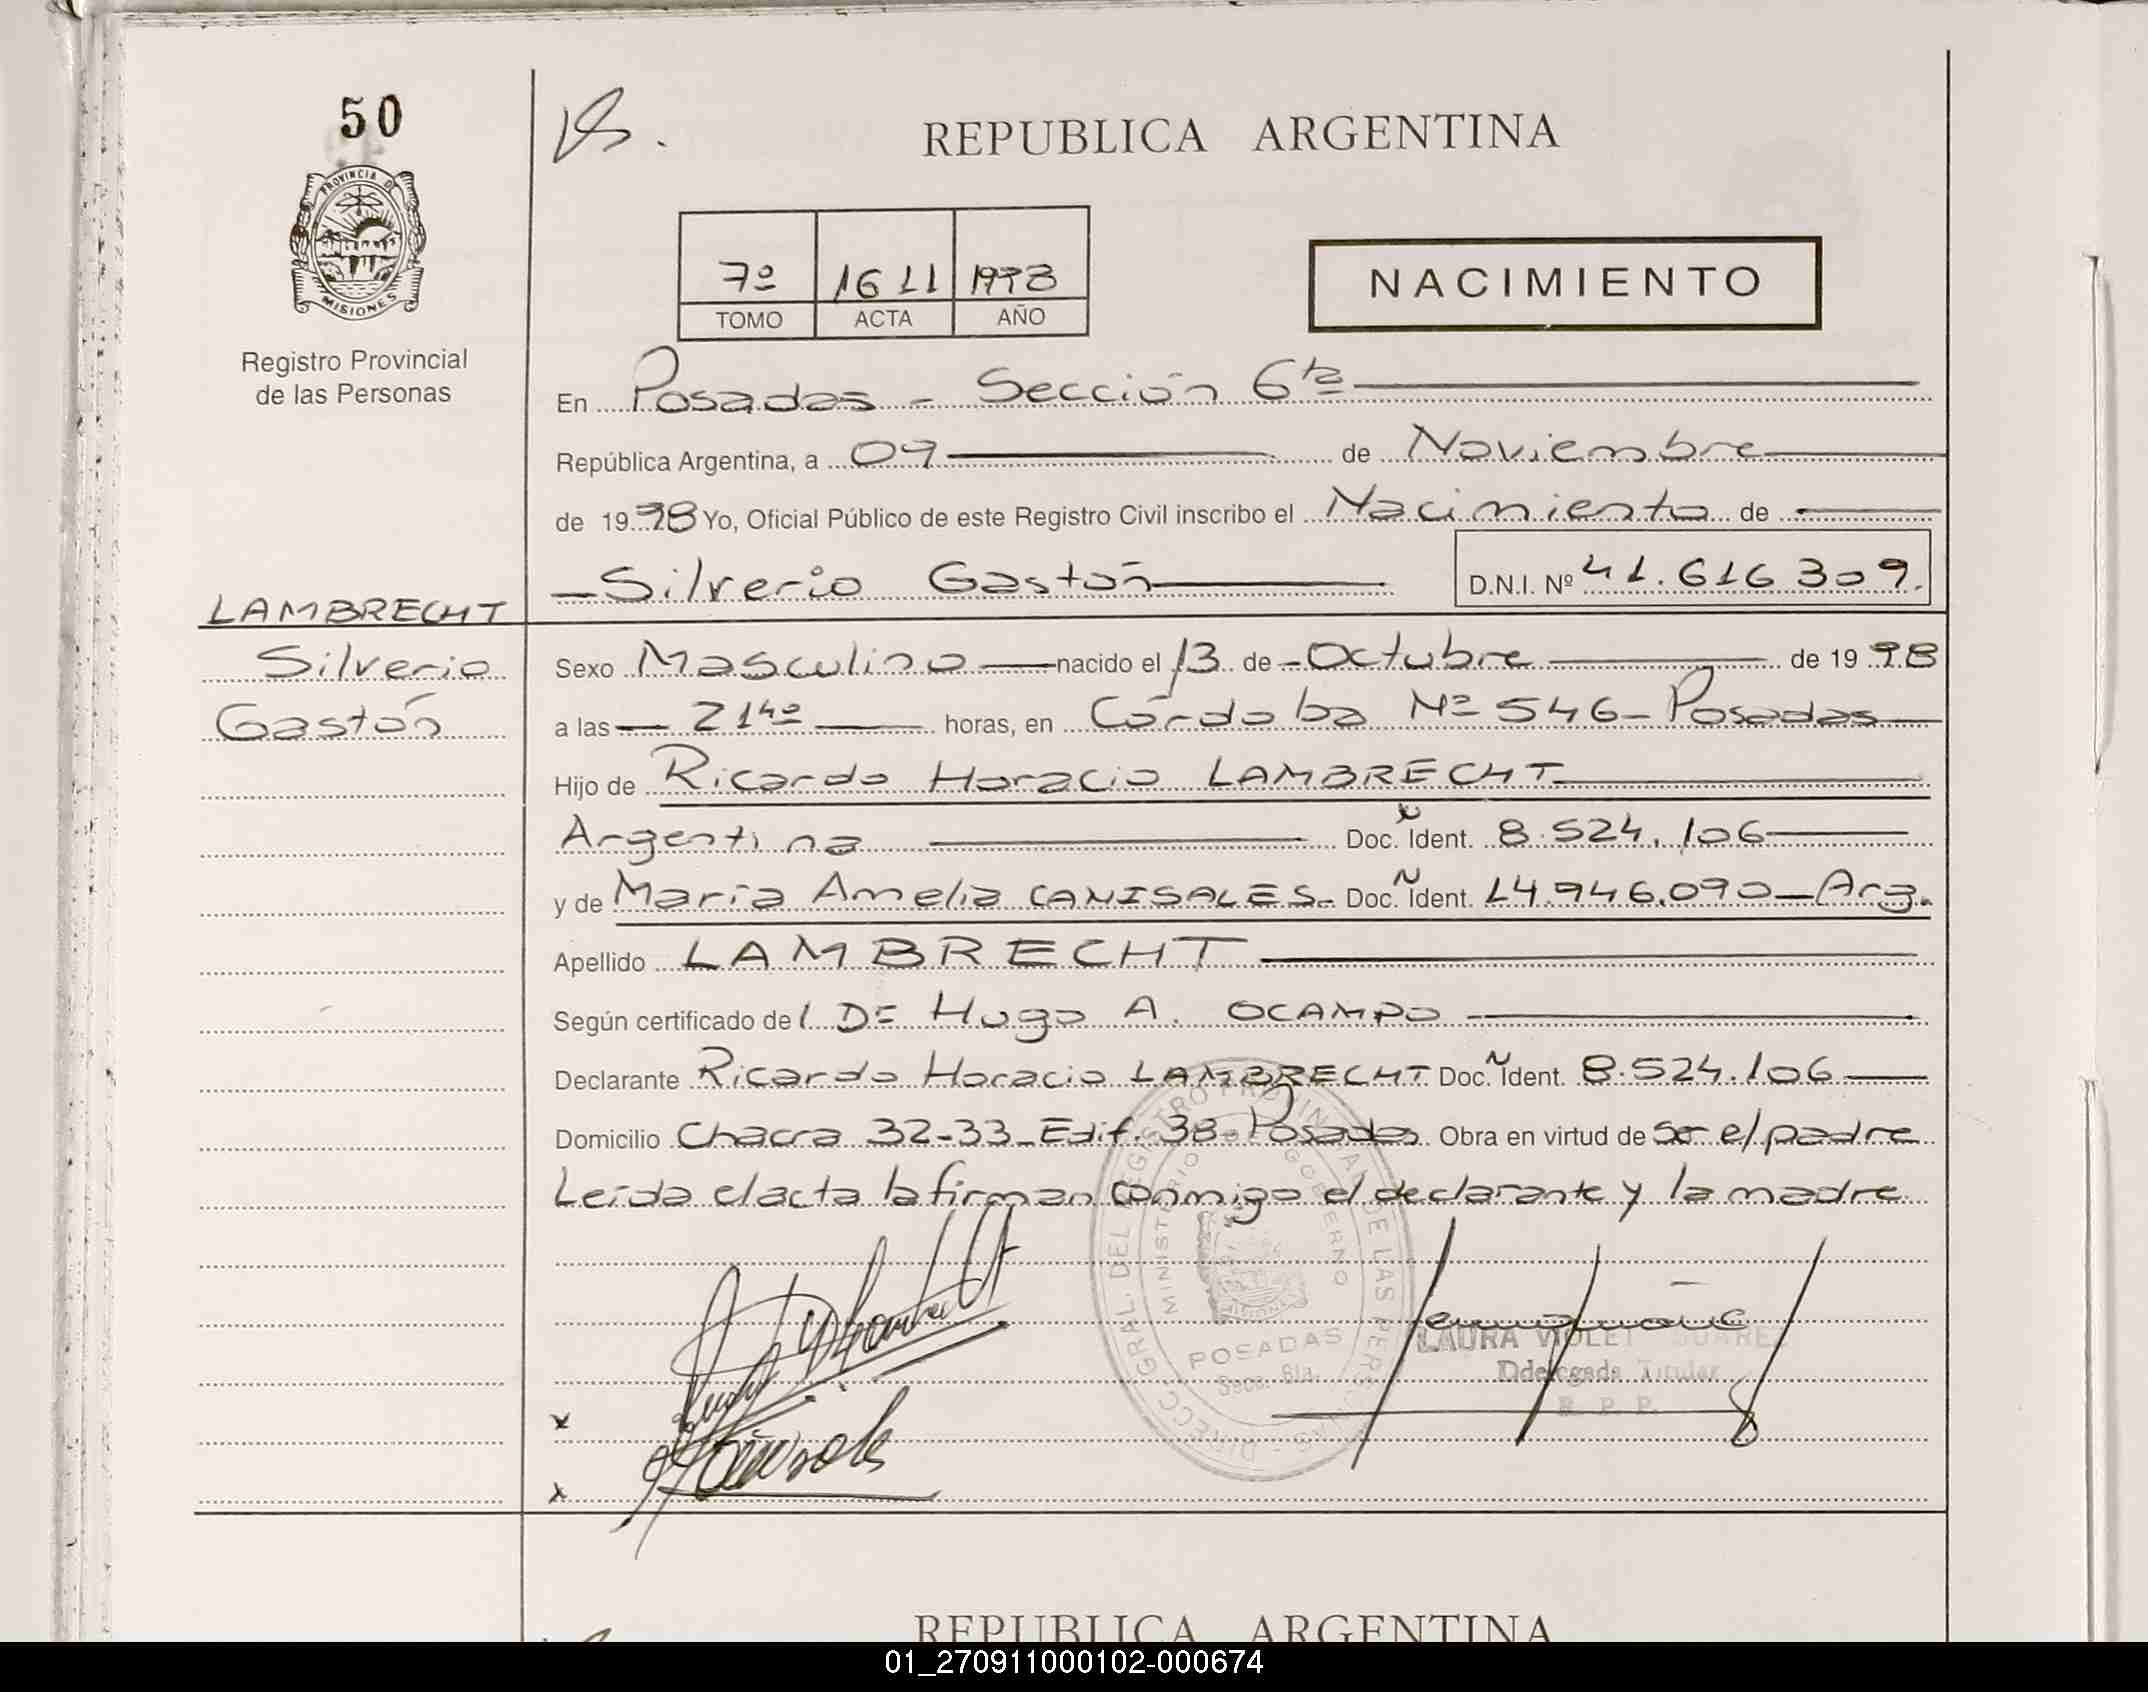 50
PROVINCIA DE
MISIONES
Registro Provincial
de las Personas
REPUBLICA ARGENTINA
7º 1611 1998
TOMO ACTA AÑO
NACIMIENTO
En Posadas - Sección 6ta
República Argentina, a 09 de Noviembre
de 1998 Yo, Oficial Público de este Registro Civil inscribo el Nacimiento de
Silverio Gastón D.N.I. Nº 41.616.309.
LAMBRECHT
Silverio
Gastón
Sexo Masculino nacido el 13 de Octubre de 1998
a las 21 horas, en Córdoba Nº 546 - Posadas
Hijo de Ricardo Horacio LAMBRECHT
Argentina Doc. Ident. 8.524.106
y de María Amelia CANISALES - Doc. Ident. 14.946.090 - Arg.
Apellido LAMBRECHT
Según certificado del Dr Hugo A. OCAMPO
Declarante Ricardo Horacio LAMBRECHT Doc. Ident. 8.524.106
Domicilio Chacra 32-33 - Edif. 38 - Posadas Obra en virtud de ser el padre
Leída el acta la firman conmigo el declarante y la madre
DIRECC. GRAL. DEL REGISTRO PROVINCIAL DE LAS PERS.
MINISTERIO GOBIERNO
MISIONES
POSADAS
Secc. 6ta.
LAURA VIOLET SUAREZ
Ddelegada Titular
R. P. P.
x
x
REPUBLICA ARGENTINA
01_270911000102-000674